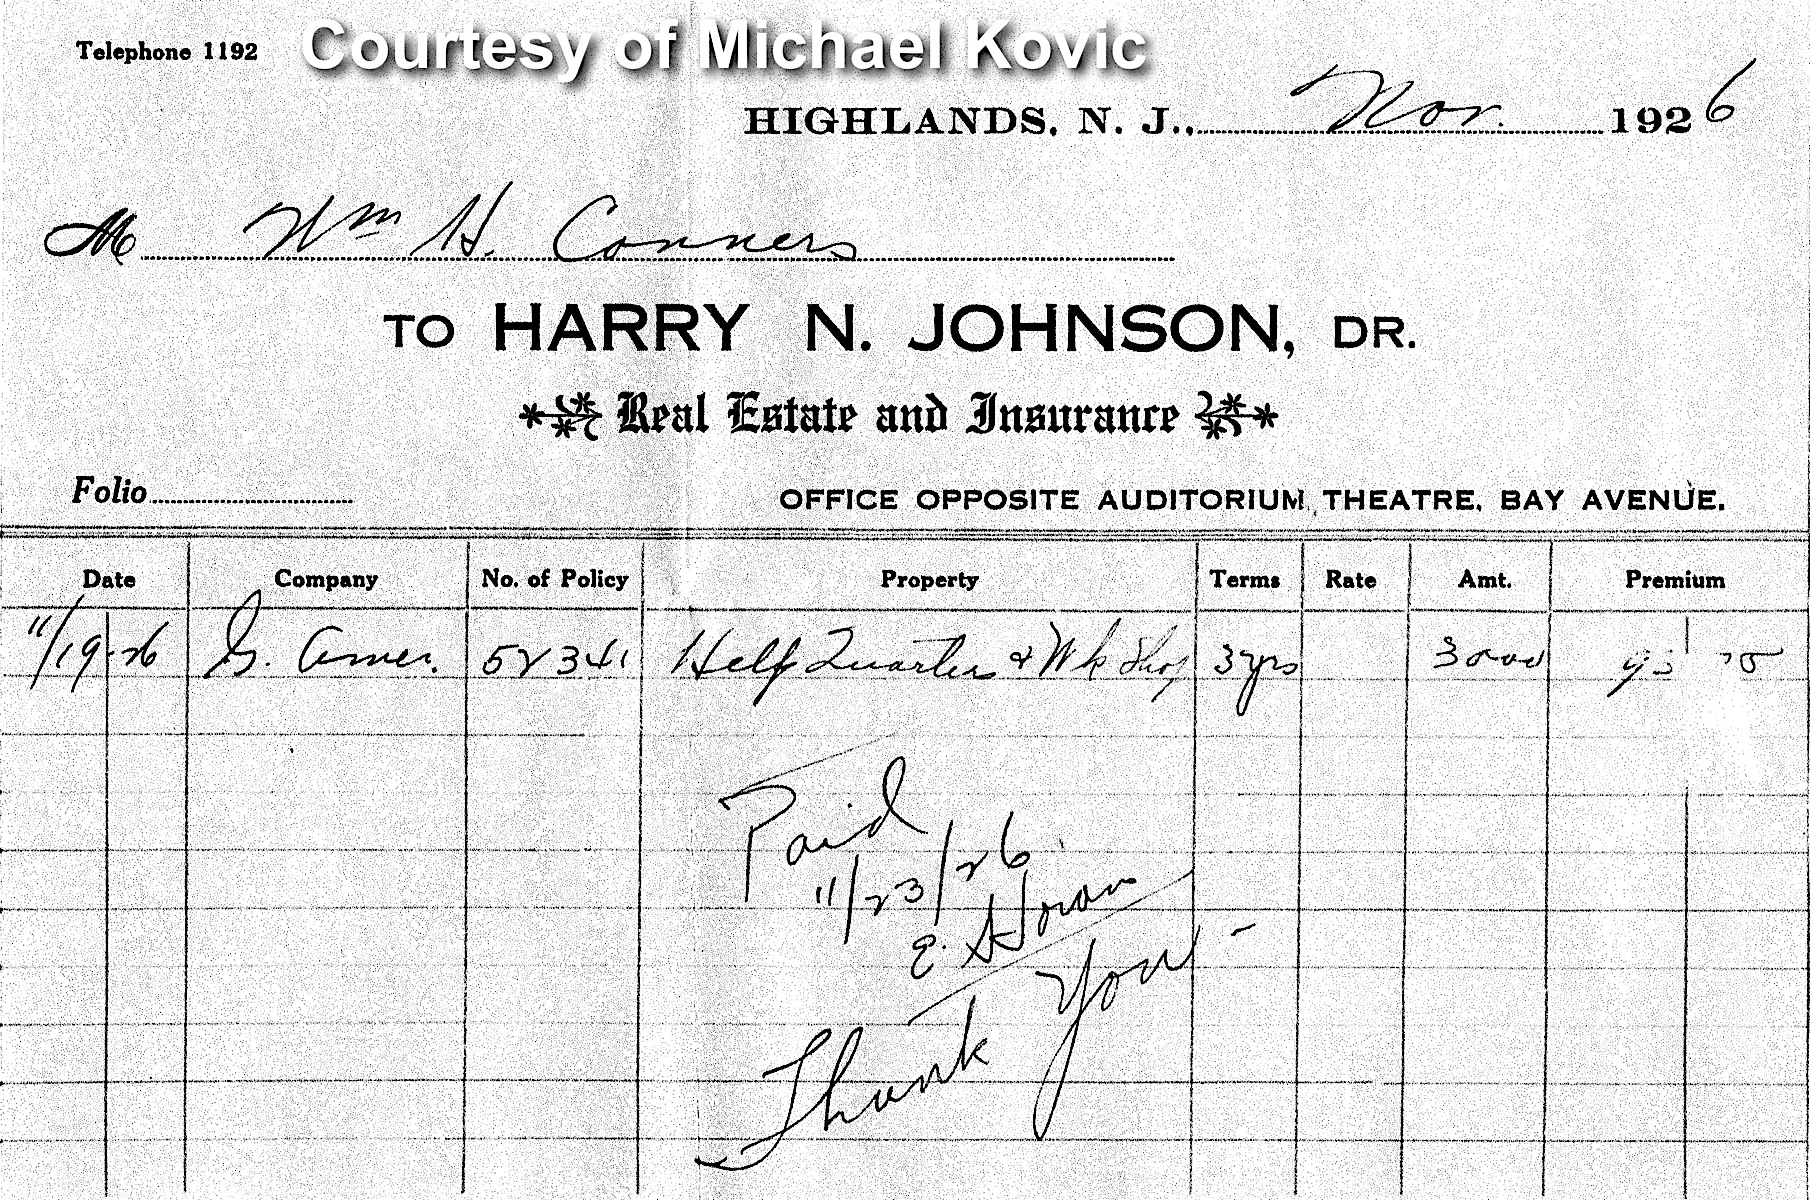 Courtesy of Michael Kovic
Telephone 1192
HIGHLANDS, N. J., Nov. 1926
M Wm H. Conners
TO HARRY N. JOHNSON, DR.
Real Estate and Insurance
Folio
OFFICE OPPOSITE AUDITORIUM THEATRE, BAY AVENUE.
Date Company No. of Policy Property Terms Rate Amt. Premium
11/19-26 G. Amer. 52341 Help Quarters & Wk Shop 3 yrs 3000
Paid
11/23/26
E. Horan
Thank You -